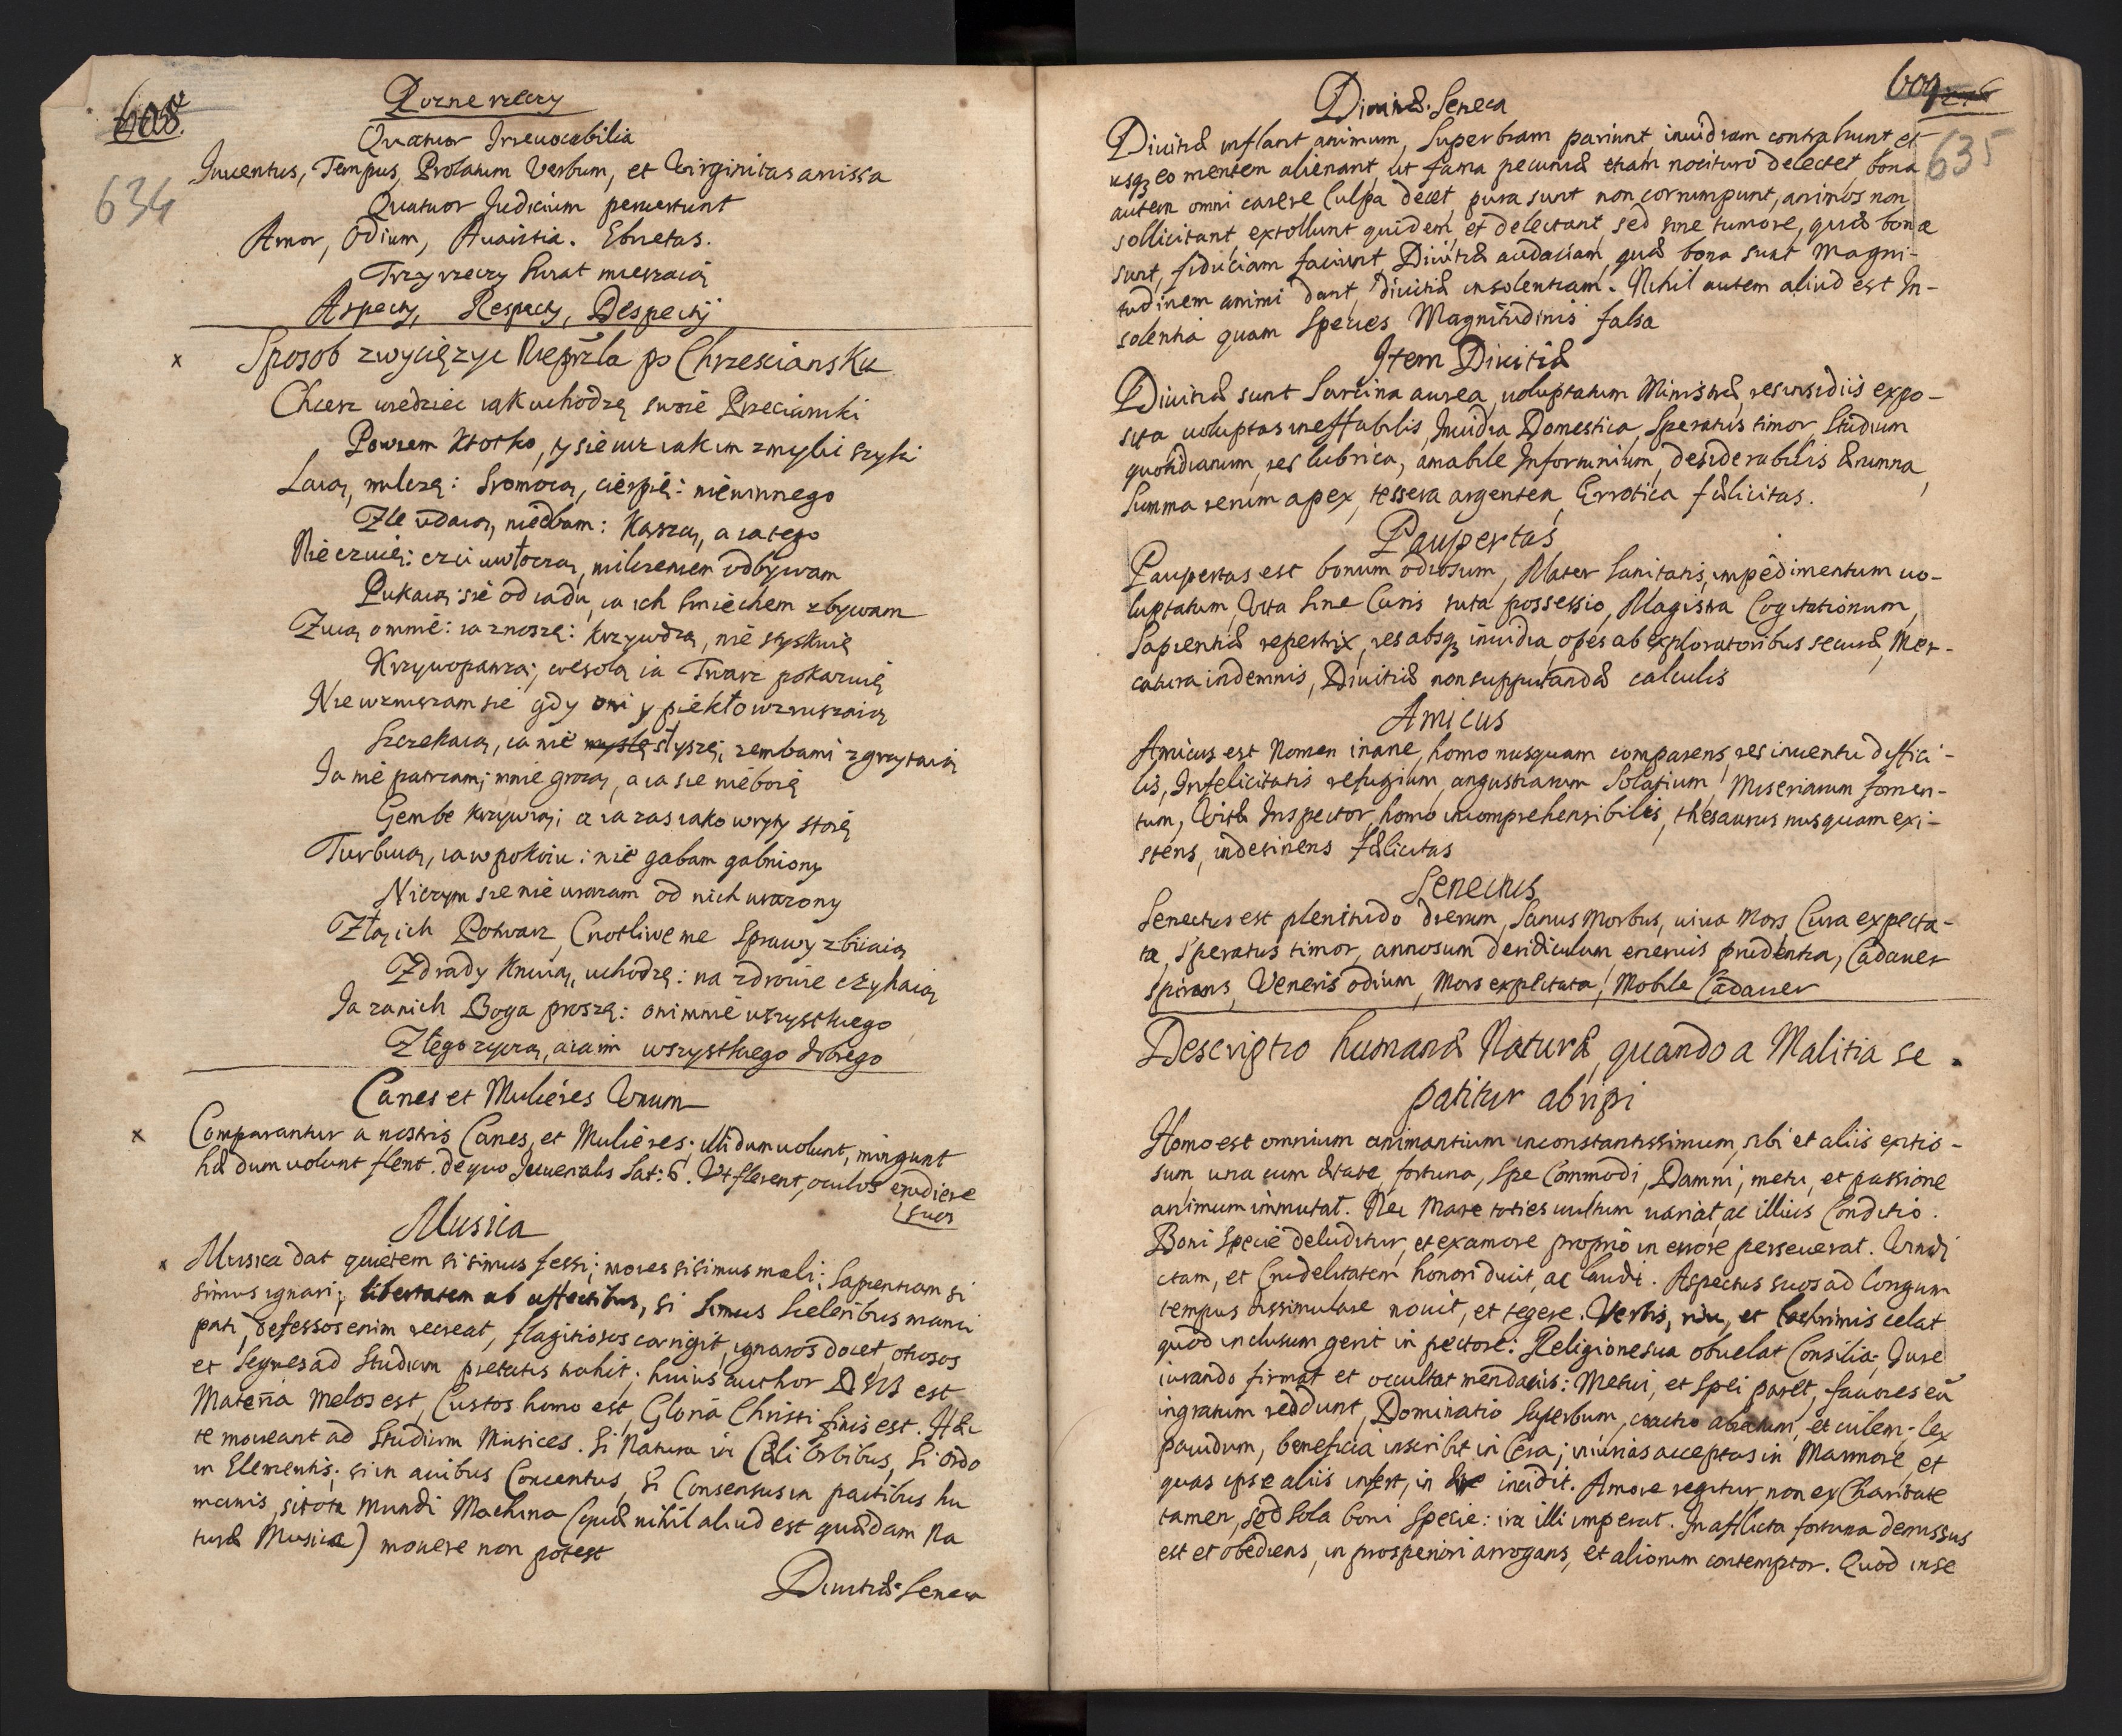 608.
634
Rozne rzeczy
Quatuor Irreuocabilia
Iuuentus, Tempus, Prolatum Verbum, et Virginitas amissa
Quatuor Iudicium peruertunt
Amor, Odium, Auaritia. Ebrietas.
Trzy rzeczy Swiat mieszaią
Aspecty, Respecty, Despecty
x Sposob zwyciężyc Nieprzła po Chrzesciansku
Chcesz wiedziec iak uchodzę swoie Przeciwniki
Powiem krotko, ty sie ucz iak im zmylic szyki
Laią, milczę: Sromocą, cierpię: niewinnego
Zle udaią, niedbam: Kąszą, a ia tego
Nie czuię: czci uwłoczą, milczeniem odbywam
Pukaią sie od iadu, ia ich smiechem zbywam
Zuią o mnie: ia znoszę: krzywdzą, nie styskuię
Krzywopatrzą; wesołą ia Twarz pokazuię
Nie wzruszam sie gdy oni y piekło wzruszaią
Szczekaią, ia nie myslę słyszę; zembami zgrzytaią
Ia nie patrzam; mnie grozą, a ia sie nieboię
Gembe krzywią; a ia zas iako wryty stoię
Turbuią, ia w pokoiu: nie gabam gabniony
Niczym sie nie urazam od nich urazony
Złą ich Potwarz Cnotliwe me Sprawy zbiiaią
Zdrady knuią, uchodzę: na zdrowie czyhaią
Ia za nich Boga proszę: oni mnie wszystkiego
Złego zyczą, a ia im wszystkiego dobrego
Canes et Mulieres Unum
x Comparantur a nostris Canes, et Mulieres; illi dum uolunt, mingunt
hæ dum uolunt flent. de quo Iuuenalis Sat: 6. Ut flerent, oculos erudiere
suos
Musica
x Musica dat quietem si simus fessi; mores si simus mali; Sapientiam si
simus ignari; libertatem ab affectibus, si simus Sceleribus manci
pati; defessos enim recreat, flagitiosos corrigit, ignaros docet, otiosos
et segnes ad Studium pietatis trahit; huius author DEUS est
Materia Melos est, Custos homo est, Gloria Christi finis est. Hæc
te moueant ad Studium Musices. Si Natura in Cœli Orbibus, Si Ordo
in Elementis; si in auibus Concentus, Si Consensus in partibus hu
manis, si tota Mundi Machina (quæ nihil aliud est quædam Na
turæ Musica) mouere non potest
Diuitiæ. Seneca
609
635
Diuitiæ. Seneca
Diuitiæ inflant animum, Superbiam pariunt, inuidiam contrahunt et
usq3 eo mentem alienant, ut fama pecuniæ etiam nocitura delectet, bona
autem omni carere Culpa decet, pura sunt non corrumpunt, animos non
sollicitant, extollunt quidem, et delectant, sed sine tumore, quæ bonæ
sunt, fiduciam faciunt Diuitiæ audaciam, quæ bona sunt Magni-
tudinem animi dant, Diuitiæ insolentiam. Nihil autem aliud est In-
solentia quam Species Magnitudinis falsa
Item Diuitiæ
Diuitiæ sunt Sarcina aurea, uoluptatum Ministræ, res insidiis expo-
sita uoluptas ineffabilis, Inuidia Domestica, Speratus timor, Studium
quotidianum, res lubrica, amabile Infortunium, desiderabilis ærumna,
Summa rerum apex, tessera argentea, Errotica fælicitas.
Paupertas
Paupertas est bonum odiosum, Mater Sanitatis, impedimentum uo-
luptatum, Vita sine Curis tuta possessio, Magistra Cogitationum,
Sapientiæ repertrix, res absq3 inuidia, opes ab exploratoribus securæ, Mer-
catura indemnis, Diuitiæ non supputandæ calculis
Amicus
Amicus est Nomen inane, homo nusquam comparens, res inuentu diffici-
lis, Infelicitatis refugium, angustiarum Solatium, Miseriarum fomen-
tum, Vitæ Inspector, homo incomprehensibilis, thesaurus nusquam exi-
stens, indesinens Fælicitas
Senectus
Senectus est plenitudo dierum, Sanus Morbus, uiua Mors, Cura expecta-
ta, Speratus timor, annosum deridiculum eneruis prudentia, Cadauer
spirans, Veneris odium, Mors expectata, Mobile Cadauer
Descriptio humanæ Naturæ, quando a Malitia se
patitur abripi
Homo est omnium animantium inconstantissimum, sibi et aliis exitio-
sum una cum ætate, fortuna, Spe Commodi, Damni, metu, et passione
animum immutat. Nec Mare toties uultum uariat, ac illius Conditio.
Boni Specie deluditur, et ex amore proprio in errore perseuerat. Vindi
ctam, et Crudelitatem honori ducit, ac laudi. Aspectus suos ad longum
tempus dissimulare nouit, et tegere. Verbis, risu, et lachrimis celat
quod inclusum gerit in pectore: Religione sua obuelat Consilia; Iure
iurando firmat et occultat mendacia: Metui, et Spei paret, fauores eū
ingratum reddunt, Dominatio Superbum, coactio abiectum, et uilem; lex
pauidum, beneficia inscribit in Cera; iniurias acceptas in Marmore, et
quas ipse aliis infert, in incidit. Amore regitur, non ex Charitate
tamen, sed sola boni Specie: ira illi imperat. In afflicta fortuna demissus
est et obediens, in prosperiori arrogans, et aliorum contemptor. Quod in se